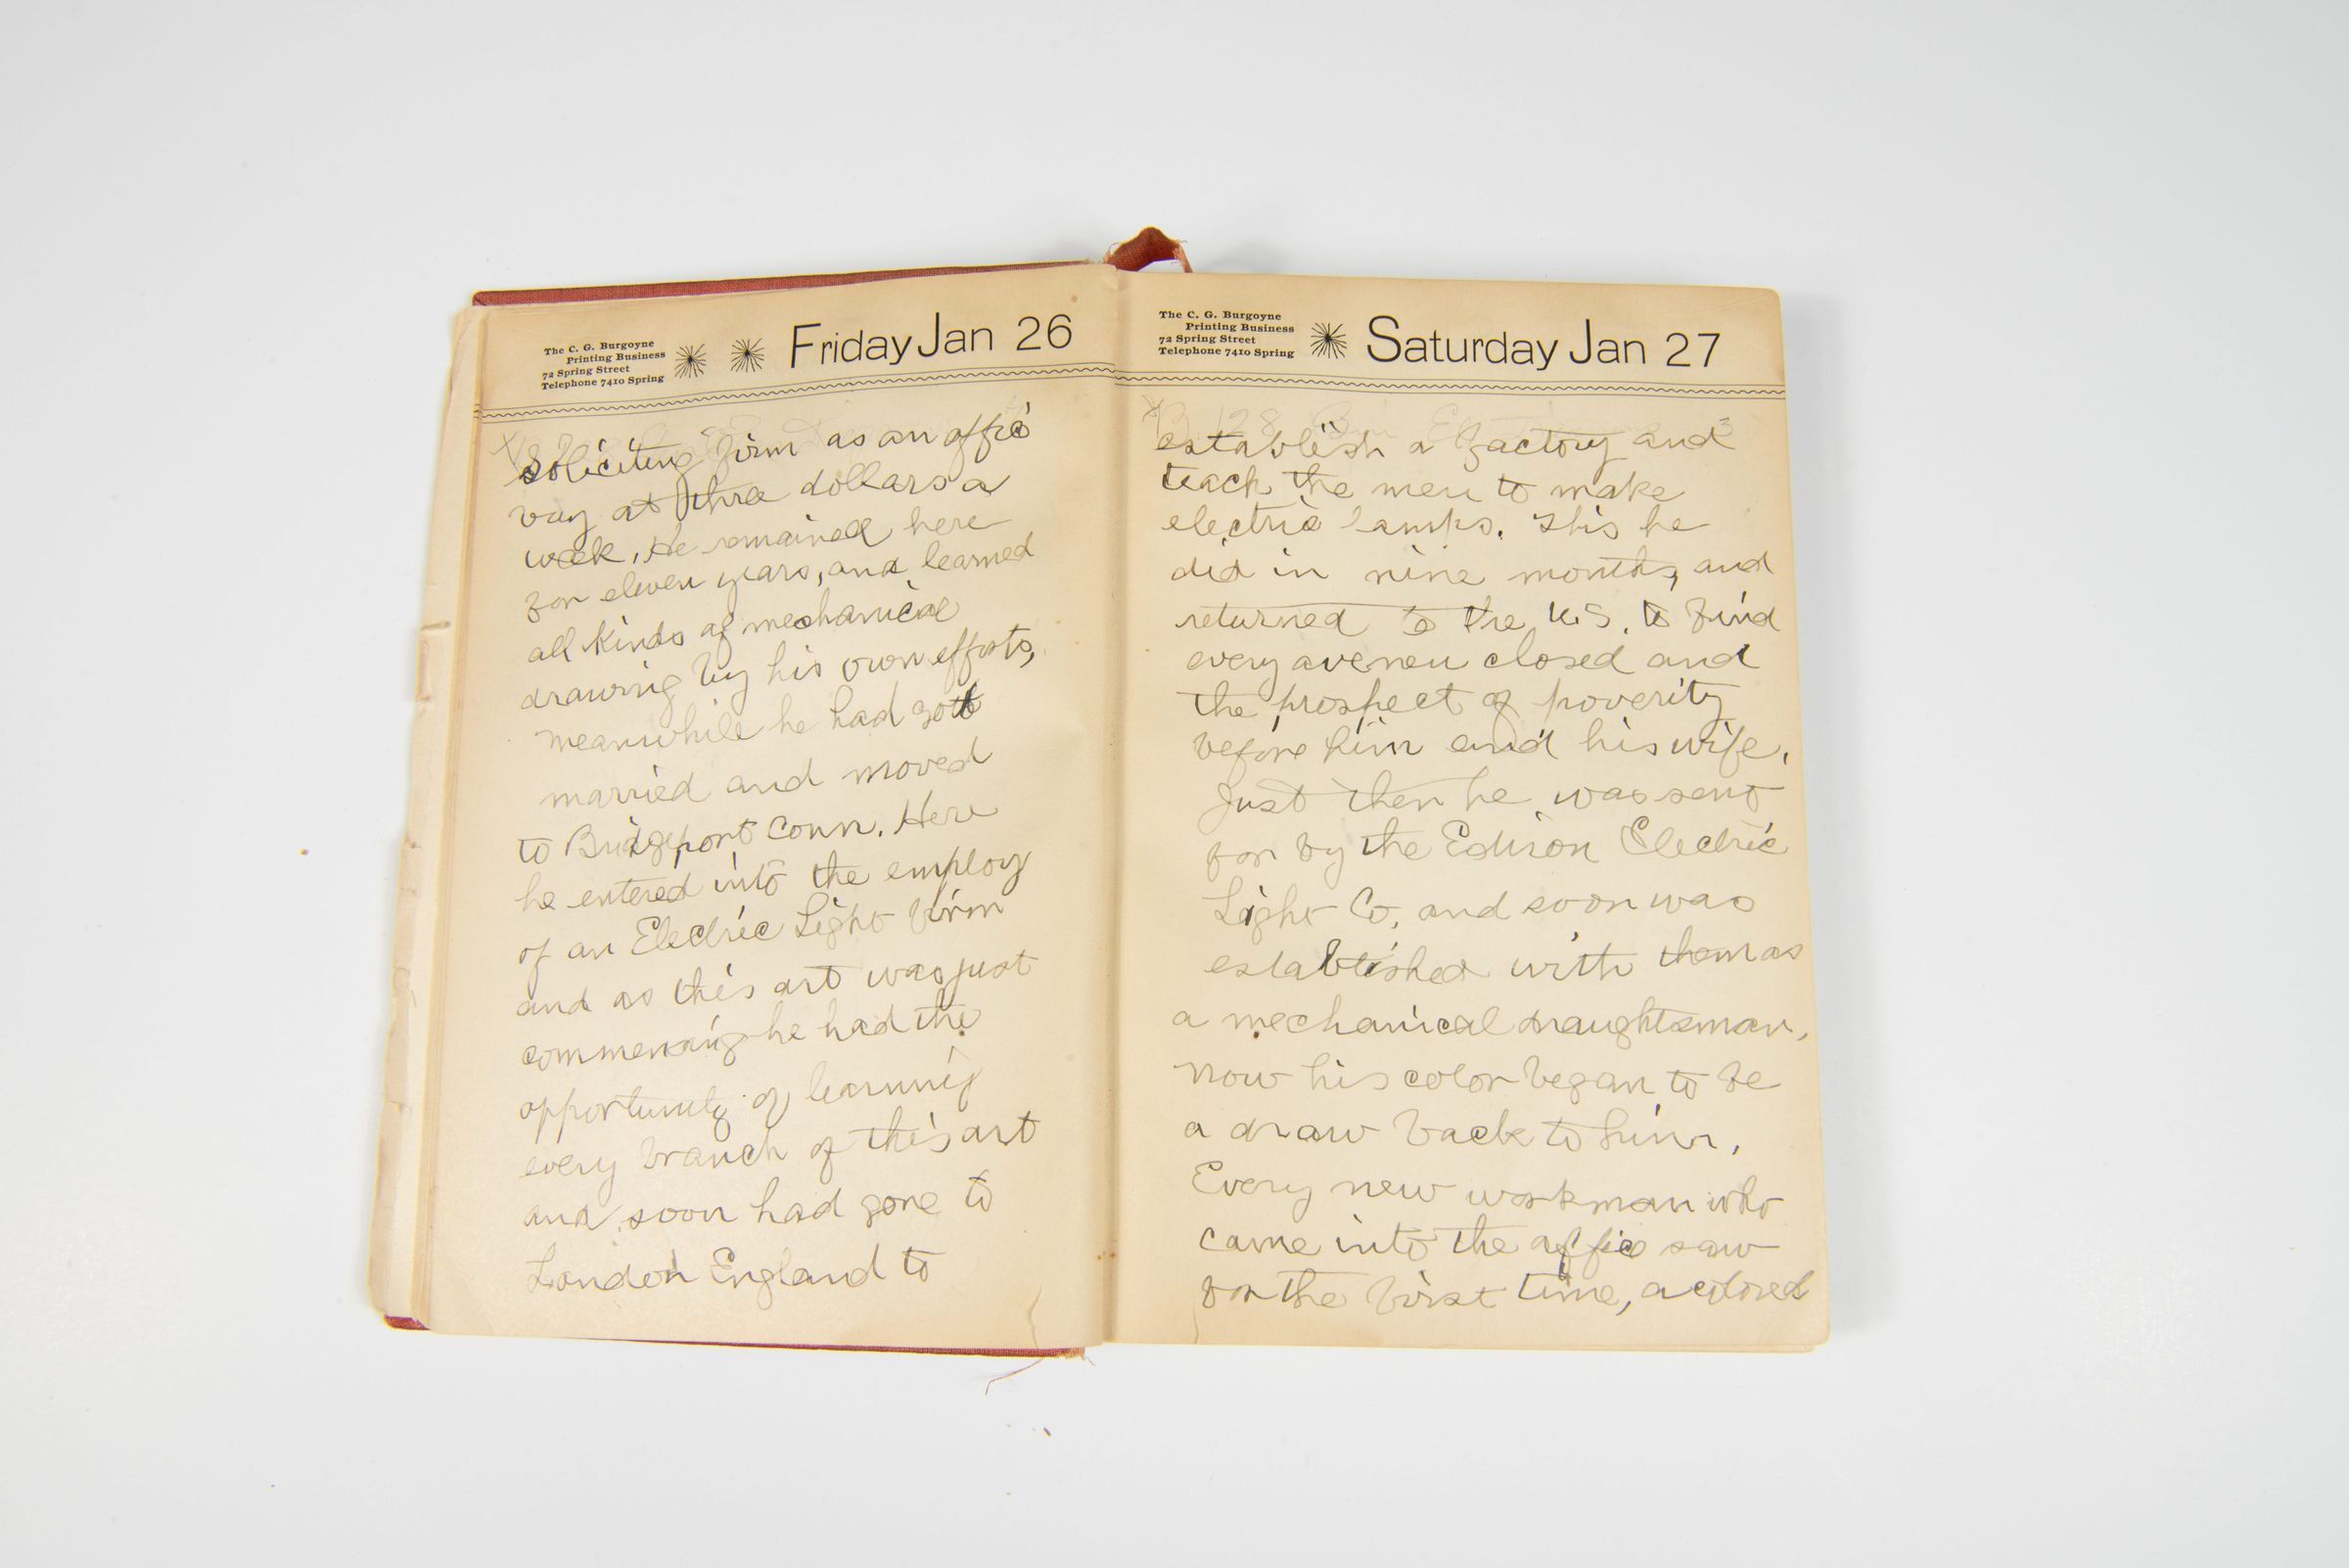 The C. G. Burgoyne
Printing Business
72 Spring Street
Telephone 7410 Spring
Friday Jan 26
soliciting firm as an office
boy at three dollars a
week. He remained here
for eleven years, and learned
all kinds of mechanical
drawing by his own efforts,
meanwhile he had gott
married and moved
to Bridgeport Conn. Here
he entered into the employ
of an Electric Light firm
and as this art was just
commencing he had the
opportunity of learning
every branch of this art
and soon had gone to
London England to
The C. G. Burgoyne
Printing Business
72 Spring Street
Telephone 7410 Spring
Saturday Jan 27
establish a factory and
teach the men to make
electric lamps. This he
did in nine months, and
returned to the U.S. to find
every aveneu closed and
the prospect of poverity
before him and his wife.
Just then he was sent
for by the Edison Electric
Light Co, and soon was
established with them as
a mechanical draughtsman,
now his color began to be
a draw back to him,
Every new workman who
came into the office saw
for the first time, a colored